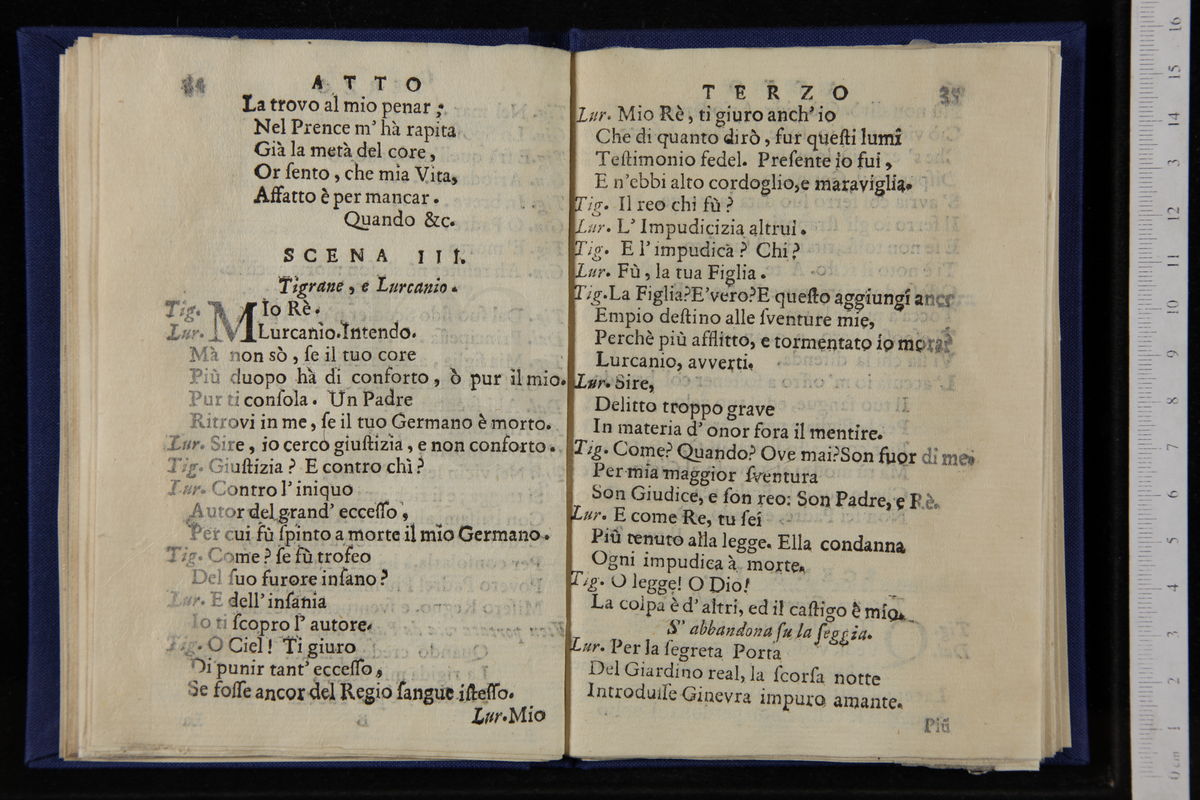 34
ATTO
La trovo al mio penar ;
Nel Prence m' hà rapita
Già la metà del core ,
Or ſento , che mia Vita,
Affatto è per mancar .
Quando &c.
SCENA III.
Tigrane , e Lurcanio .
Tig. MIo Rè .
Lur. Lurcanio.Intendo.
Mà non sò , ſe il tuo core
Più duopo hà di conforto , ò pur il mio.
Pur ti conſola . Un Padre
Ritrovi in me , ſe il tuo Germano è morto.
Lur. Sire , io cerco giuſtizia , e non conforto .
Tig. Giuſtizia ? E contro chì ?
Lur. Contro l' iniquo
Autor del grand' ecceſſo ,
Per cui fù ſpinto a morte il mio Germano .
Tig. Come ? ſe fù trofeo
Del ſuo furore inſano ?
Lur. E dell' inſania
Io ti ſcopro l' autore.
Tig. O Ciel ! Ti giuro
Di punir tant' ecceſſo ,
Se foſſe ancor del Regio ſangue iſteſſo.
Lur.Mio
TERZO
35
Lur. Mio Rè , ti giuro anch' io
Che di quanto dirò , fur queſti lumi
Teſtimonio fedel. Preſente io fui ,
E n'ebbi alto cordoglio,e maraviglia.
Tig. Il reo chi fù ?
Lur. L' Impudicizia altrui .
Tig. E l' impudica ? Chi ?
Lur. Fù , la tua Figlia .
Tig.La Figlia?E'vero?E queſto aggiungi ancor
Empio deſtino alle ſventure mie,
Perchè più afflitto, e tormentato io mora?
Lurcanio, avverti.
Lur. Sire,
Delitto troppo grave
In materia d' onor fora il mentire.
Tig. Come? Quando? Ove mai?Son fuor di me.
Per mia maggior ſventura
Son Giudice, e ſon reo: Son Padre, e Rè.
Lur. E come Re, tu ſei
Più tenuto alla legge. Ella condanna
Ogni impudica à morte.
Tig. O legge! O Dio!
La colpa è d' altri, ed il caſtigo è mio.
S' abbandona ſu la ſeggia.
Lur. Per la ſegreta Porta
Del Giardino real, la ſcorſa notte
Introduſſe Ginevra impuro amante.
Più